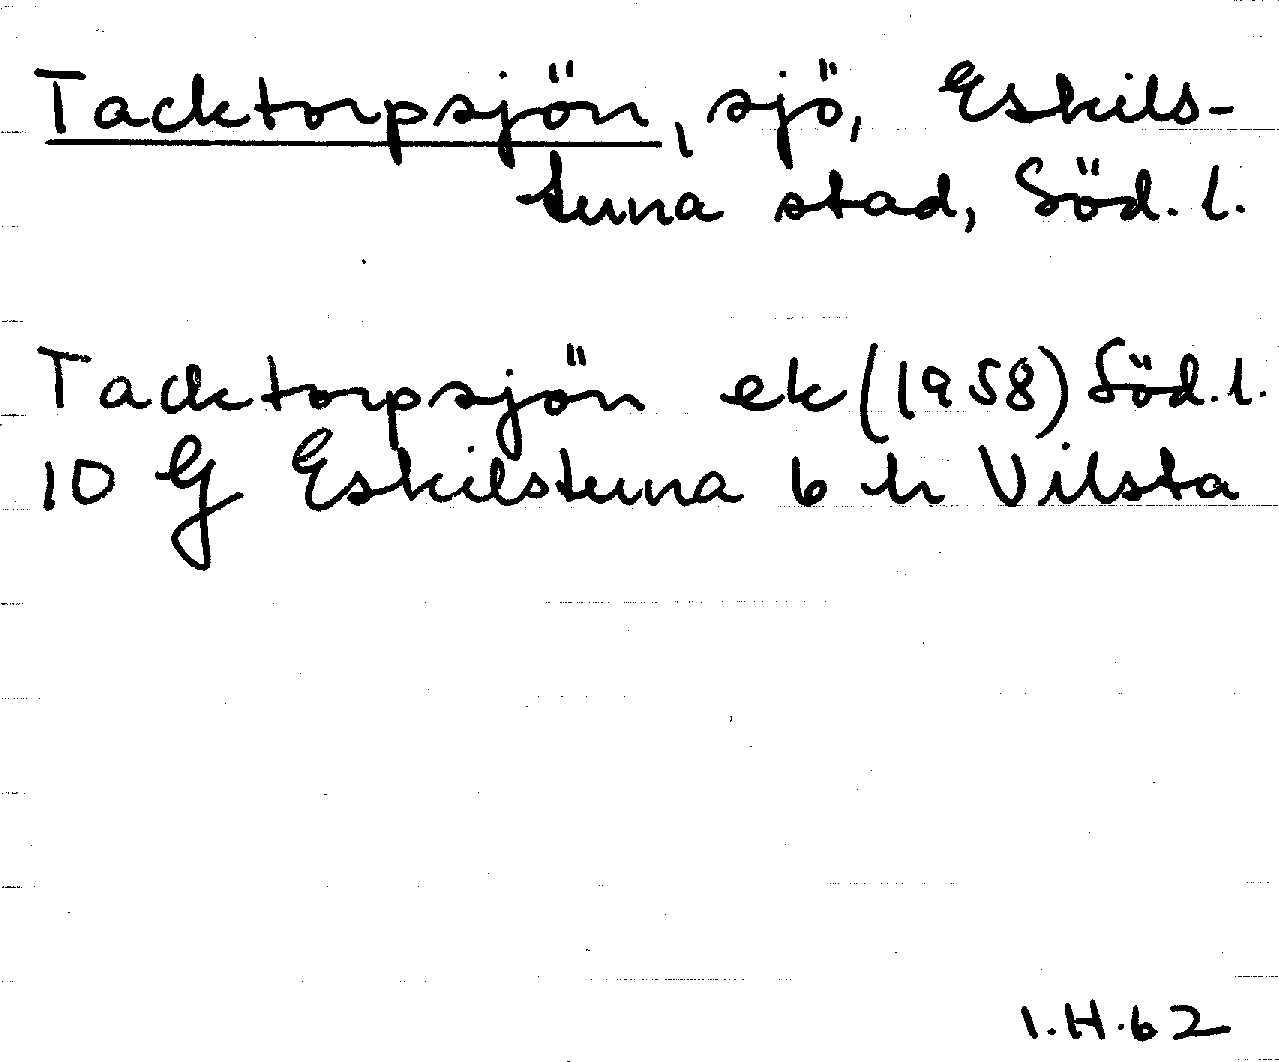 Tacktorpsjön, sjö, Eskils-
tuna stad, Söd. l.
Tacktorpsjön ek (1958) Söd. l.
10 G Eskilstuna 6 h Vilsta
I.H.62